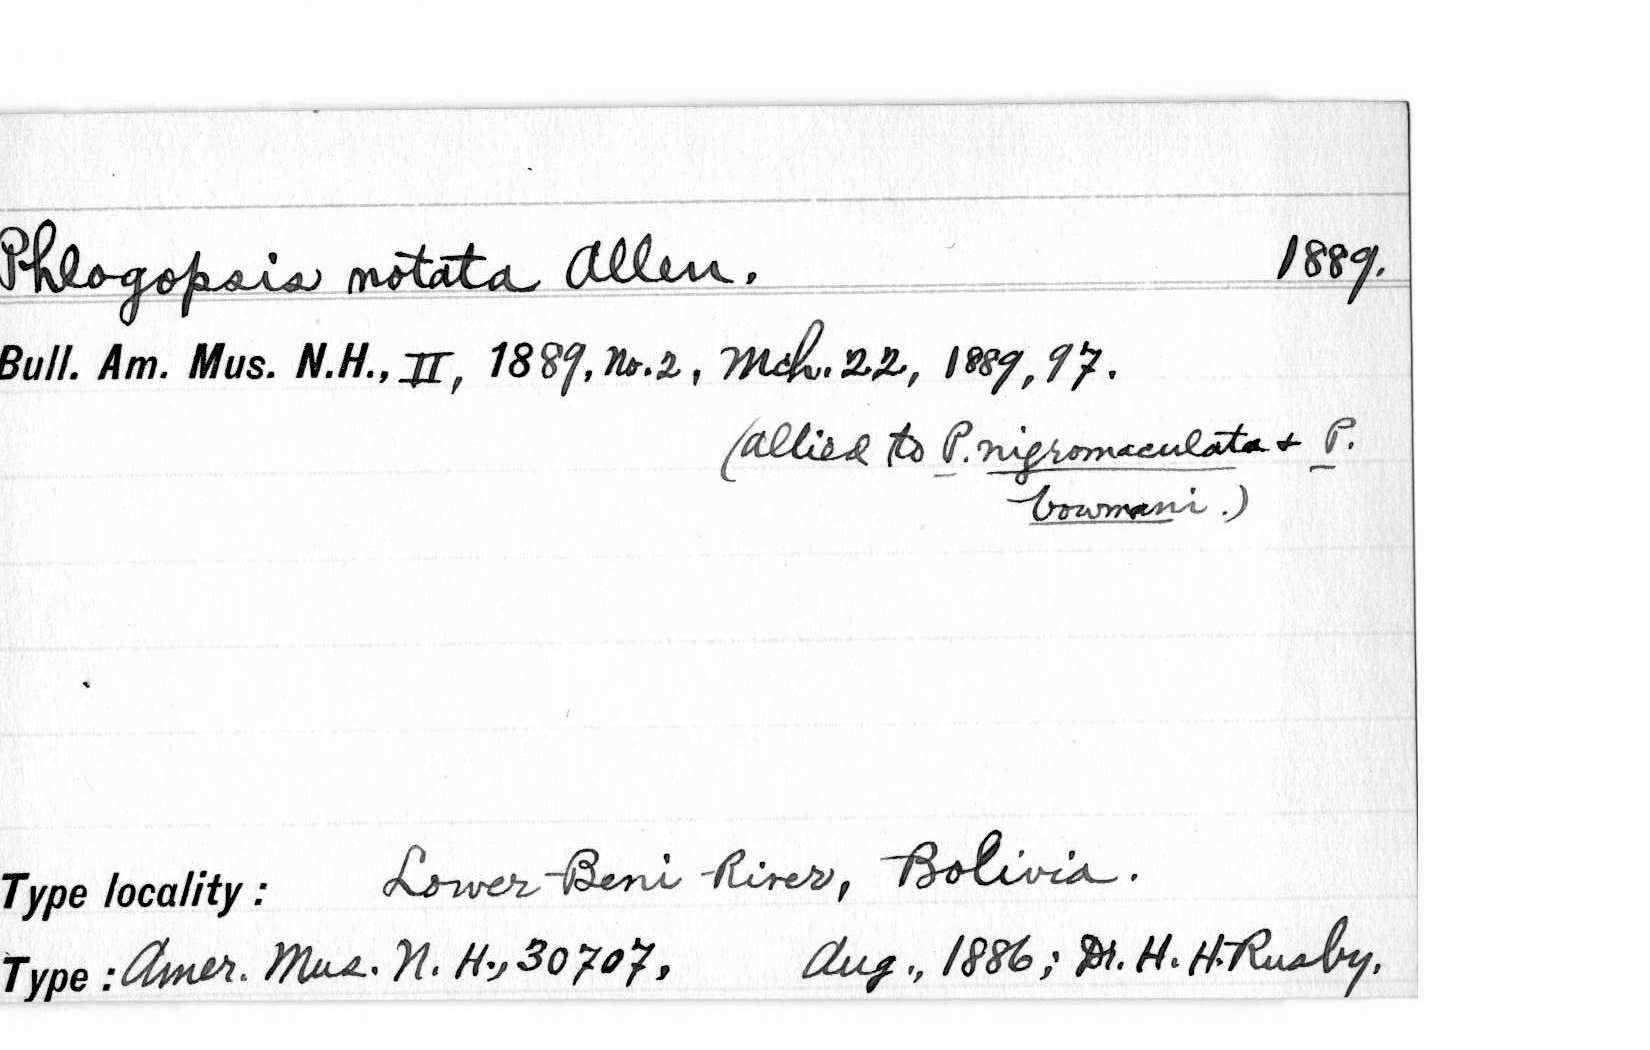 Phlogopsis notata Allen. 1889.
Bull. Am. Mus. N.H., II, 1889, No. 2, Mch. 22, 1889, 97.
(Allied to P. nigromaculata & P.
bowmani.)
Type locality: Lower Beni River, Bolivia.
Type: Amer. Mus. N. H., 30707, Aug., 1886; Dr. H. H. Rusby.